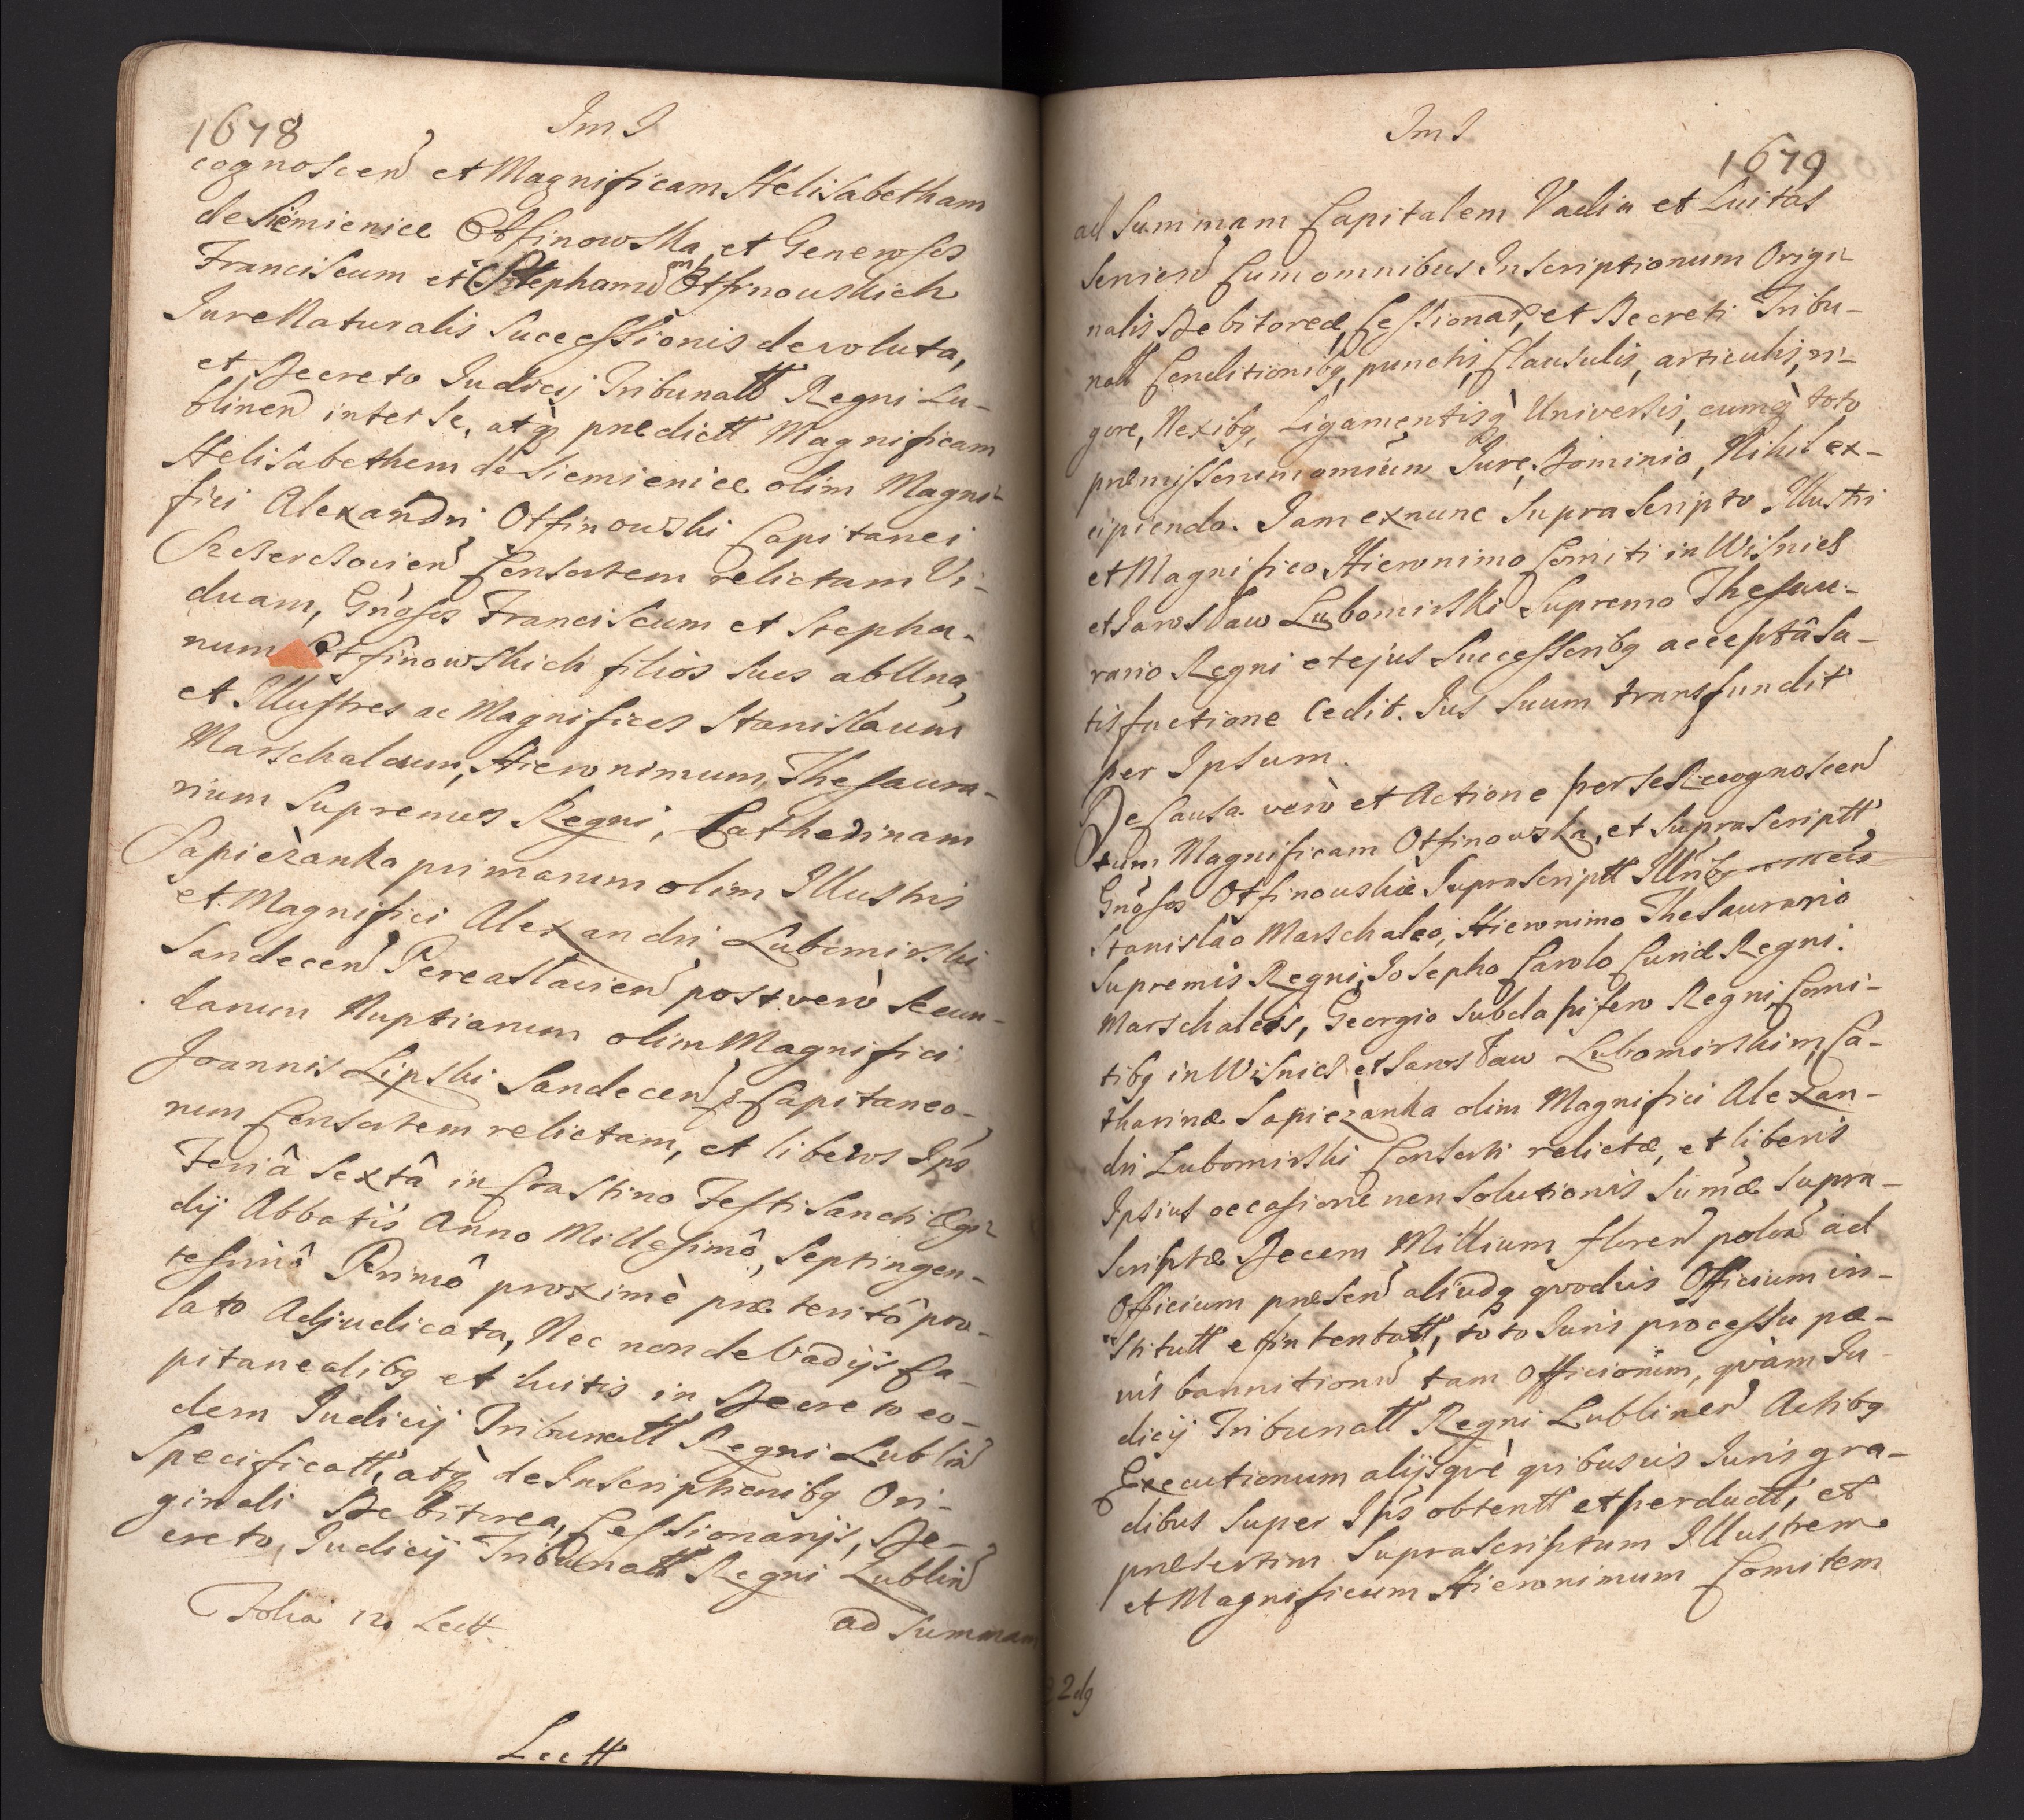 1678
Im I
cognoscen et Magnificam Helisabetham
de Siemienice Otfinowska, et Generosos
Franciscum et Stephanum Otfinowskich
Iure Naturalis Successionis devoluta,
et Decreto Iudicij Tribunall Regni Lu-
blinen inter se, atq praedictt Magnificam
Helisabethem de Siemienice olim Magni-
fici Alexandri Otfinowski Capitanei
Consortem relictam Vi-
duam, Gnosos Franciscum et Stepha-
num Otfinowskich filios suos ab Una,
et Illustres ac Magnificos Stanislaum
Marschalcum, Hieronimum Thesaura-
rium Supremos Regni, Catherinam
Sapieżanka primarum olim Illustris
et Magnifici Alexandri Lubomirski
Sandecen Pereaslavien post vero secun-
darum Nuptiarum olim Magnifici
Joannis Lipski Sandecen Capitaneo-
rum Consortem relictam, et liberos Ips
Feriâ Sextâ in Crastino Festi Sancti Ægi-
dij Abbatis Anno Millesimô, Septingen-
tesimô Primô proximè praeteritô pro-
lato Adjudicata, Nec non de Vadijs Ca-
pitanealibq et luitis in Decreto eo-
dem Iudicij Tribunall Regni Lublin
Specificatt, atq de Inscriptionibq Ori-
ginali Debitorea, Cessionarijs, De-
creto, Iudicij Tribunall Regni Lublin
Folia 12 Lectt.
ad Summam
Lectt
Im I
1679
ad Summam Capitalem Vadia et Luitas
Servien Cum omnibus Inscriptionum Origi-
nalis Debitoreæ, Cessionar, et Decreti Tribu-
nall Conditionibq, punctis, Clausulis, articulis, ri-
gore, Nexibq, Ligamentisq Universis, cumq toto
præmissorum omnium Iure, Dominio, Nihil ex-
cipiendo. Iam ex nunc Supra Scripto Illustri
et Magnifico Hieronimo Comiti in Wisnicz
et Jarosław Lubomirski Supremo Thesau-
rario Regni et ejus Successoribq acceptâ Sa-
tisfactione Cedit. Ius Suum transfundit
per Ipsum.
De Causa vero et Actione per se Recognoscen
tum Magnificam Otfinowska, et supra scriptt
Gnosos Otfinowskie Suprascriptt Illribq
Stanislao Marschalco, Hieronimo Thesaurario
Supremis Regni, Josepho Carolo Curiæ Regni
Marschalcis, Georgio Subdapifero Regni, Comi-
tibq in Wisnicz et Jarosław Lubomirskim, Ca-
tharinæ Sapieżanka olim Magnifici Alexan-
dri Lubomirski Consorti relictæ, et liberis
Ipsius occasione non solutionis Sumæ Supra-
scriptæ Decem Millium floren polon ad
Officium præsen aliudq quodvis Officium in-
stitutt et intentatt, toto Iuris processu pæ-
nis bannition tam Officiorum, quàm Iu-
dicij Tribunall Regni Lublinen Actibq
Executionum alijsquè quibusvis Iuris gra-
dibus super Ips obtentt et perductt, et
præsertim SupraScriptum Illustrem
et Magnificum Hieronimum Comitem